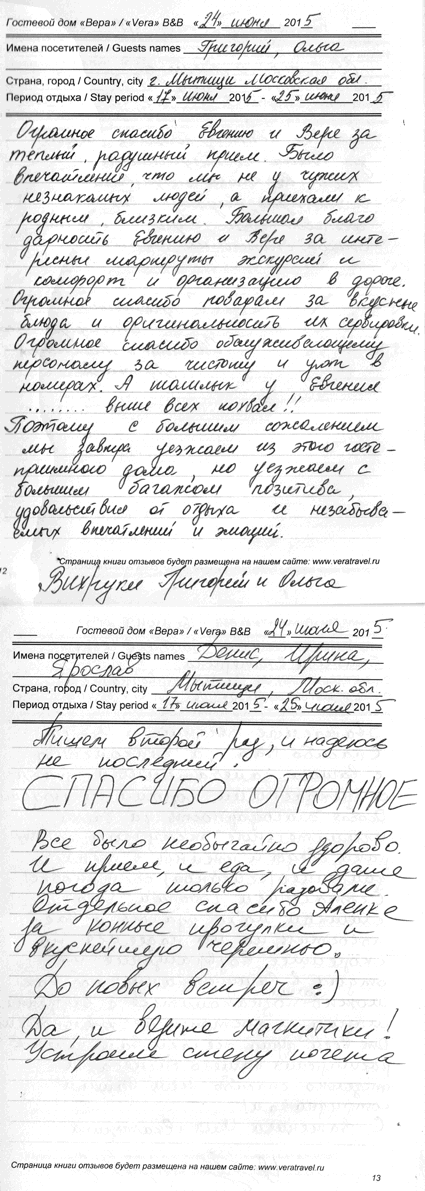 Гостевой дом «Вера» / «Vera» B&B «24» июня 2015
Имена посетителей / Guests names Григорий, Ольга
Страна, город / Country, city г. Мытищи Московская обл.
Период отдыха / Stay period «17» июня 2015 - «25» июня 2015
Огромное спасибо Евгению и Вере за
теплый, радушный прием. Было
впечатление, что мы не у чужих
незнакомых людей, а приехали к
родным, близким. Большая благо
дарность Евгению и Вере за инте-
ресные маршруты экскурсий и
комфорт и организацию в дороге.
Огромное спасибо поварам за вкусные
блюда и оригинальность их сервировки.
Огромное спасибо обслуживающему
персоналу за чистоту и уют в
номерах. А шашлык у Евгения
........ выше всех похвал!!
Поэтому с большим сожалением
мы завтра уезжаем из этого госте-
приимного дома, но уезжаем с
большим багажом позитива,
удовольствия от отдыха и незабыва-
емых впечатлений и эмоций.
*Страница книги отзывов будет размещена на нашем сайте: www.veratravel.ru
12
Григорий и Ольга
Гостевой дом «Вера» / «Vera» B&B «24» июня 2015
Имена посетителей / Guests names Денис, Ирина,
Ярослав
Страна, город / Country, city Мытищи, Моск. обл.
Период отдыха / Stay period «17» июня 2015 - «25» июня 2015
Пишем второй раз, и надеюсь
не последний!
СПАСИБО ОГРОМНОЕ
Все было необычайно здорово.
И прием, и еда, и даже
погода только радовали.
Отдельное спасибо Аленке
за конные прогулки и
вкуснейшую черемшу.
До новых встреч :)
Да, и везите магнитики!
Устроим стену почета
Страница книги отзывов будет размещена на нашем сайте: www.veratravel.ru
13